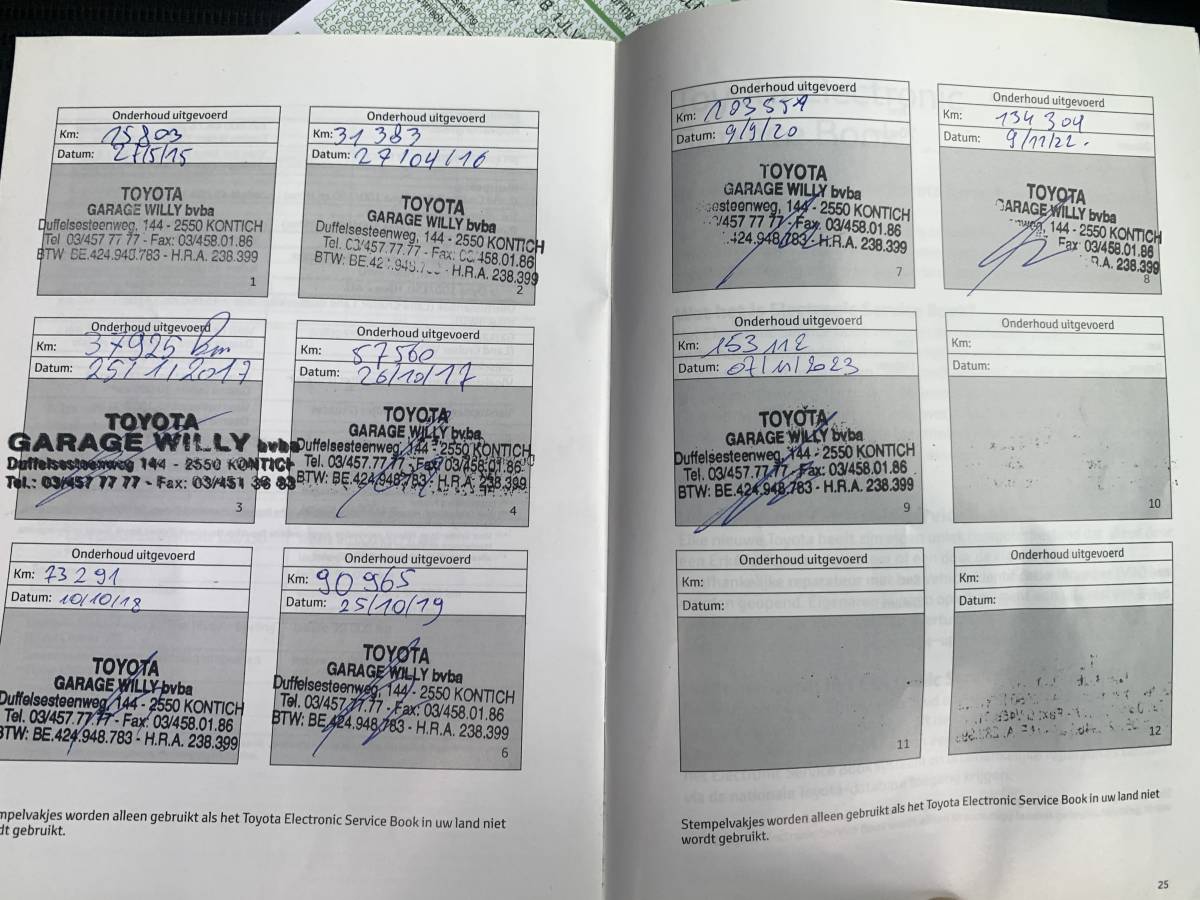 Onderhoud uitgevoerd
Km: 15803
Datum: 27/5/15
TOYOTA
GARAGE WILLY bvba
Duffelsesteenweg, 144 - 2550 KONTICH
Tel 03/457 77 77 - Fax: 03/458.01.86
BTW: BE.424.948.783 - H.R.A. 238.399
1
Onderhoud uitgevoerd
Km: 31 383
Datum: 27/04/16
TOYOTA
GARAGE WILLY bvba
Duffelsesteenweg, 144 - 2550 KONTICH
Tel. 03/457.77.77 - Fax: 03/458.01.86
BTW: BE.424.948. - H.R.A. 238.399
2
Onderhoud uitgevoerd
Km: 37925 km
Datum: 25/1/2017
TOYOTA
GARAGE WILLY bvba
Duffelsesteenweg 144 - 2550 KONTICH
Tel.: 03/457 77 77 - Fax: 03/451 36 83
3
Onderhoud uitgevoerd
Km: 57560
Datum: 26/10/17
TOYOTA
GARAGE WILLY bvba
Duffelsesteenweg, 144 - 2550 KONTICH
Tel. 03/457.77.77 - Fax: 03/458.01.86
BTW: BE.424.948.783 - H.R.A. 238.399
4
Onderhoud uitgevoerd
Km: 73291
Datum: 10/10/18
TOYOTA
GARAGE WILLY bvba
Duffelsesteenweg, 144 - 2550 KONTICH
Tel. 03/457.77.77 - Fax: 03/458.01.86
BTW: BE.424.948.783 - H.R.A. 238.399
Onderhoud uitgevoerd
Km: 90965
Datum: 25/10/19
TOYOTA
GARAGE WILLY bvba
Duffelsesteenweg, 144 - 2550 KONTICH
Tel. 03/457.77.77 - Fax: 03/458.01.86
BTW: BE.424.948.783 - H.R.A. 238.399
6
mpelvakjes worden alleen gebruikt als het Toyota Electronic Service Book in uw land niet
dt gebruikt.
Onderhoud uitgevoerd
Km: 103551
Datum: 9/9/20
TOYOTA
GARAGE WILLY bvba
esteenweg, 144 - 2550 KONTICH
/457.77.77 - Fax: 03/458.01.86
.424.948.783 - H.R.A. 238.399
7
Onderhoud uitgevoerd
Km: 134 304
Datum: 9/11/22.
TOYOTA
GARAGE WILLY bvba
144 - 2550 KONTICH
Fax: 03/458.01.86
R.A. 238.399
8
Onderhoud uitgevoerd
Km: 153112
Datum: 07/11/2023
TOYOTA
GARAGE WILLY bvba
Duffelsesteenweg, 144 - 2550 KONTICH
Tel. 03/457.77.77 - Fax: 03/458.01.86
BTW: BE.424.948.783 - H.R.A. 238.399
9
Onderhoud uitgevoerd
Km:
Datum:
10
Onderhoud uitgevoerd
Km:
Datum:
11
Onderhoud uitgevoerd
Km:
Datum:
12
Stempelvakjes worden alleen gebruikt als het Toyota Electronic Service Book in uw land niet
wordt gebruikt.
25